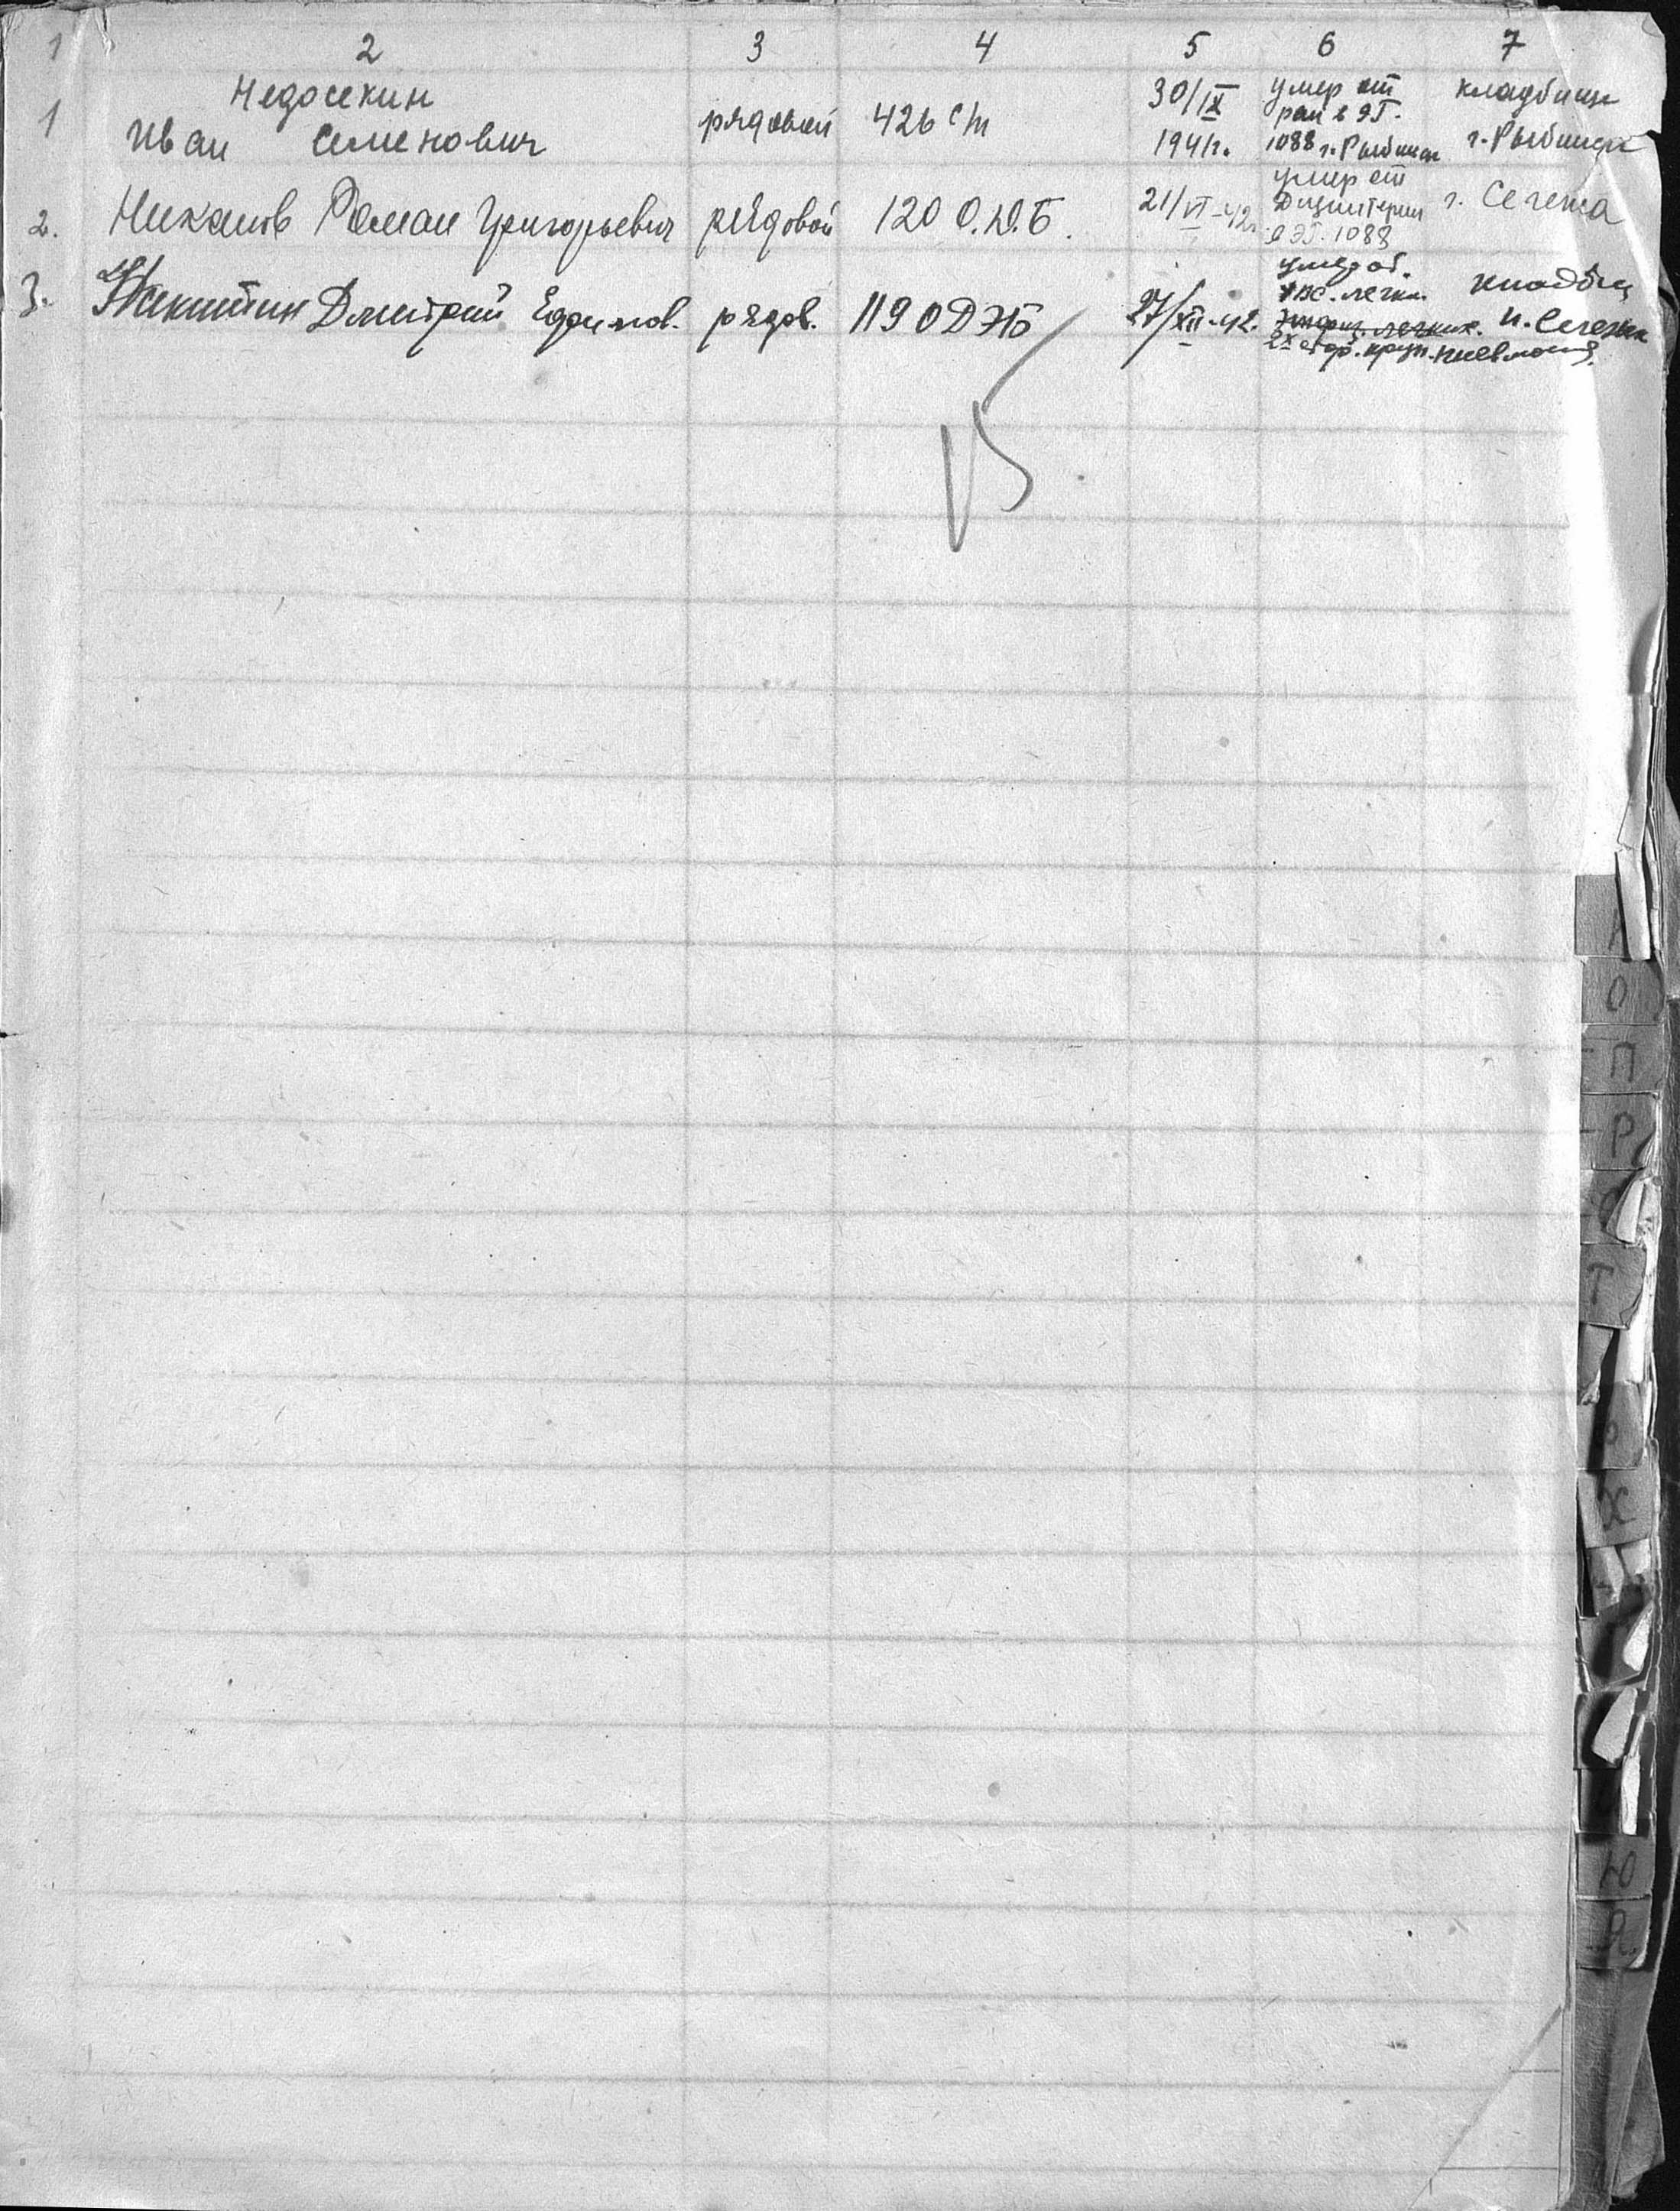 1 2 3 4 5 6 7
1 Недосекин
Иван Семенович рядовой 426 с/п 30/IX 1941г. умер от
ран в ЭГ.
1088 г. Рыбинск кладбище
г. Рыбинск
2. Никанов Роман Григорьевич рядовой 120 О.Д.Б. 21/VI-42г. умер от
Дизинтерии
в ЭГ. 1088 г. Сегежа
3. Никитин Дмитрий Ефимов. рядов. 119 ОДЭБ 27/XII-42. умер от.
легких. кладбищ
п. Сегежа
2х стор. круп. пневмония.
О
П
Р
С
Т
Х
Ю
Я